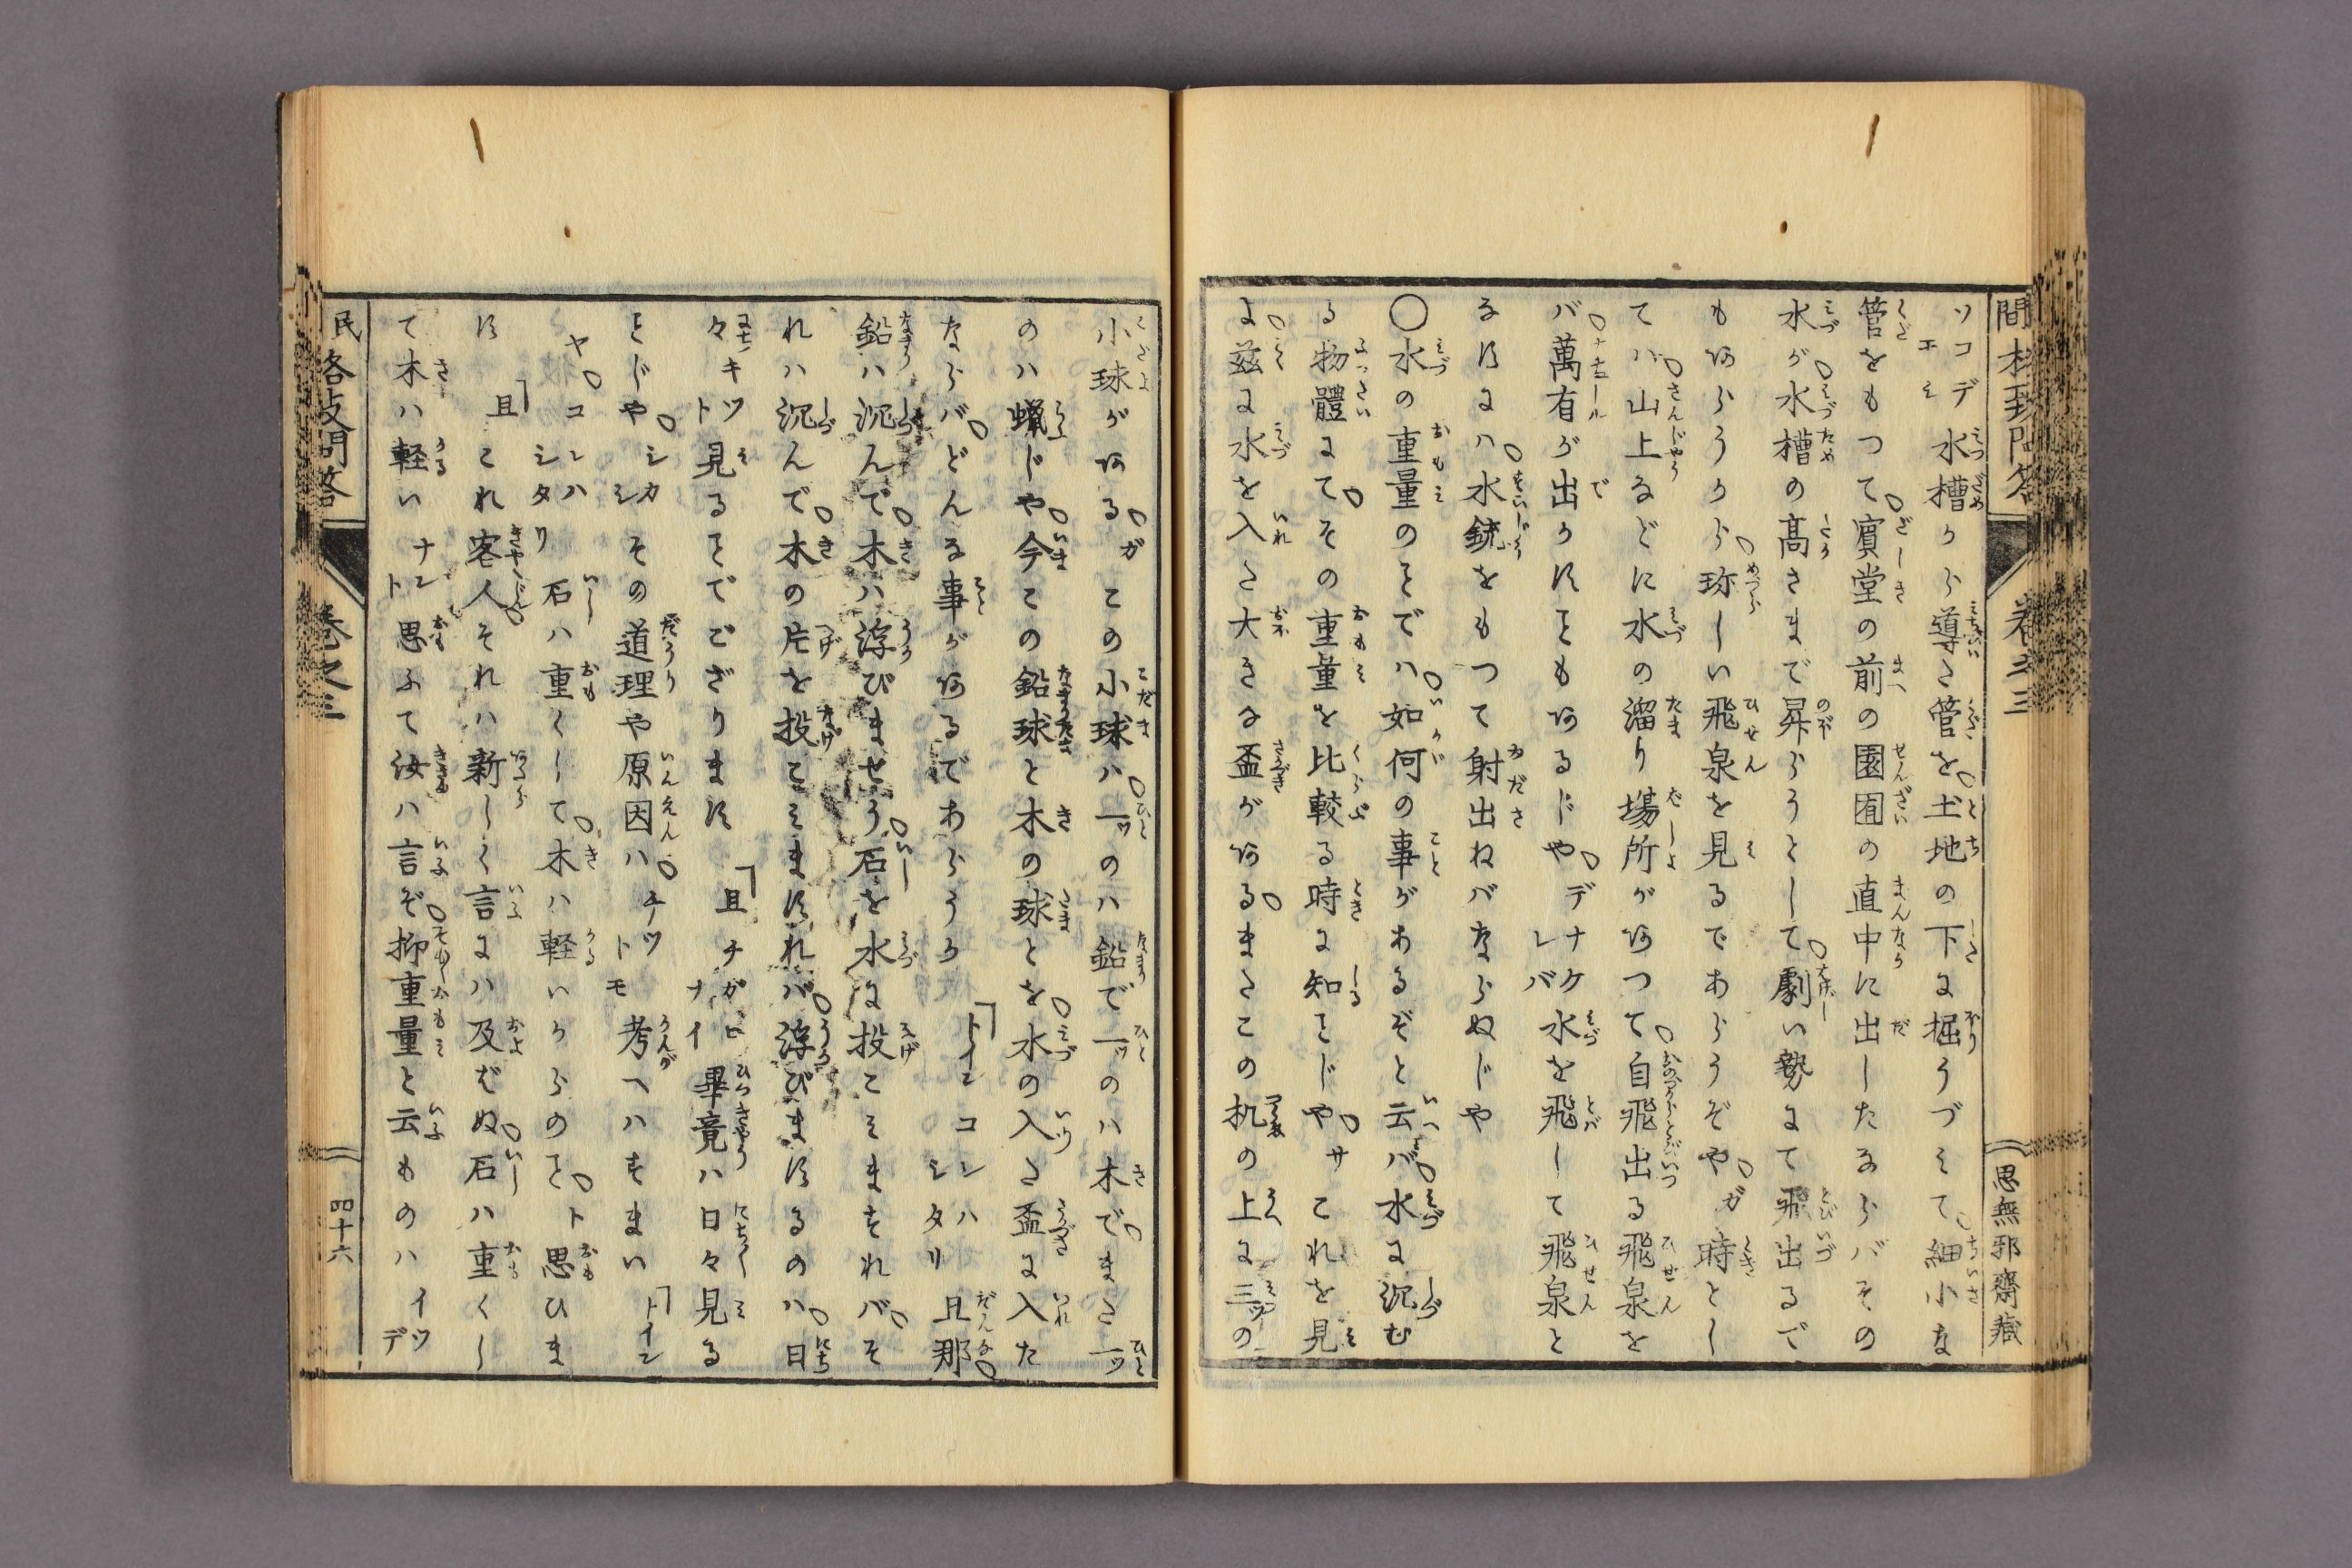 ソコデ水槽から導た管を土地の下に掘うづみて細小な
管をもつて賓堂の前の園囿の直中に出したならバその
水が水槽の髙さまで昇らうとして劇い勢にて飛出るで
もあらうから珎しい飛泉を見るであらうぞやガ時とし
てハ山上などに水の溜り塲所があつて自飛出る飛泉を
バ萬有が出かすこともあるじやデナケレバ水を飛して飛泉と
なすにハ水銃をもつて射出ねバならぬじや
〇水の重量のことでハ如何の事があるぞと云バ水に沉む
る物體にてその重量を比較る時に知ことじやサこれを見
よ茲に水を入た大きな盃があるまたこの机の上に三ツの
小球があるガこの小球ハ一ツのハ鉛で一ツのハ木でまた一ツ
のハ蝋じや今この鉛球と木の球とを水の入た盃に入た
ならバどんな事があるであらうか「トイン コレハシタリ旦那
鉛ハ沉んで木ハ浮びませう石を水に投こみませれバそ
れハ沉んで木の片を投こみますれバ浮びまするのハ日
々キツト見ることでござります「旦 チガヒナイ畢竟ハ日々見る
ことじやシカシその道理や原因ハチツトモ考へハすまい「トイン
ヤコレハシタリ石ハ重くして木ハ軽いからのことト思ひま
す「旦 これ客人それハ新しく言にハ及ばぬ石ハ重くし
て木ハ軽いナント思ふて汝ハ言ぞ抑重量と云ものハイツデ
巻之三
思無邪齋藏
民
格致問答
巻之三
四十六